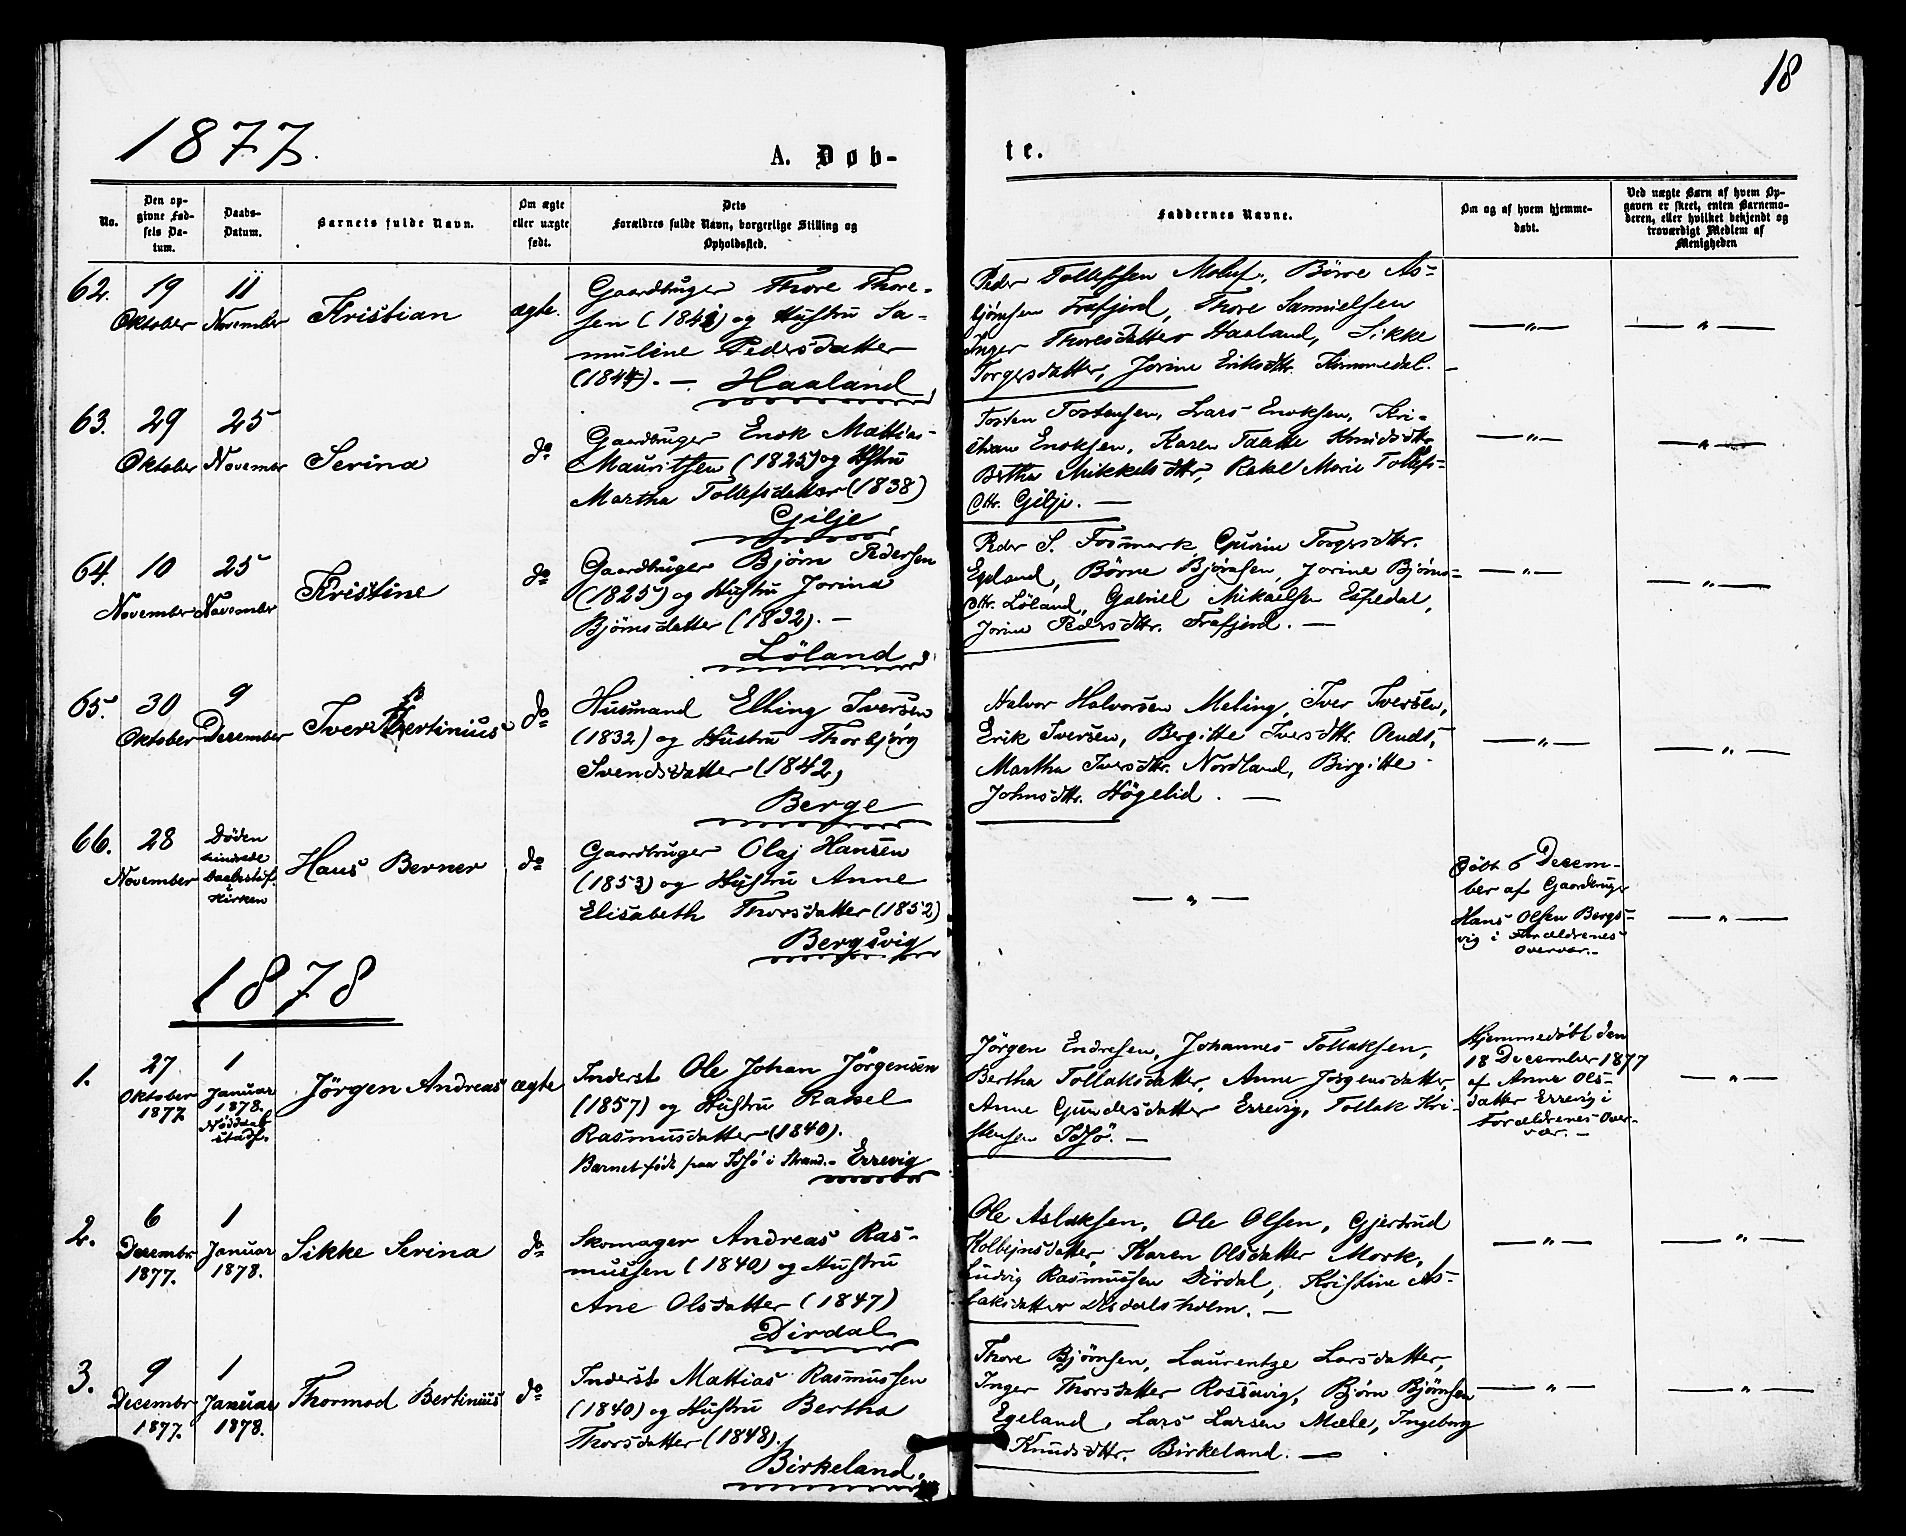 18
1877.
A. Døb-
te.
No.
Den op-
givne Fød-
sels Da-
tum.
Daabs-
Datum.
Barnets fulde Navn.
Om ægte
eller uægte
født.
Dets
Forældres fulde Navn, borgerlige Stilling og
Opholdssted.
Faddernes Navne.
Om og af hvem hjemme-
døbt.
Ved uægte Barn af hvem Op-
gaven er skeet, enten Barnemo-
deren, eller hvilket bekjendt og
troværdigt Medlem af
Menigheden
62.
19
Oktober
11
November
Kristian
ægte.
Gaardbruger Thore Thore-
sen ( ) og Hustru Sa-
muline Pedersdatter
(1844). — Haaland
Peder Tollefsen Moluf, Börre As-
björnsen Frafjord, Thore Samuelsen
Inger Thoresdatter Haaland, Sikke
Torgersdatter, Jorine Eriksdttr. Kommedal.
— „ —
— „ —
63.
29
Oktober
25
November
Serina
do
Gaardbruger Enok Mattias
Mauritsen (1825) og Hstru
Martha Tollefsdatter (1838)
Gilje
Tosten Tostensen, Lars Enoksen, Kri-
stian Enoksen, Karen Taatte Knudsdttr,
Bertha Mikkelsdttr, Rakel Marie Tollefs-
dttr. Gilje. —
— „ —
— „ —
64.
10
November
25
November
Kristine
do
Gaardbruger Bjørn Pedersen
(1825) og Hustru Jorina
Bjørnsdatter (1832). —
Löland
Peder S. Fosmark, Gurine Torgersdttr.
Egeland, Börne Bjørnsen, Jorine Bjørns-
dttr. Löland, Gabriel Mikaelsen Espedal,
Jorine Pedersdttr. Frafjord. —
— „ —
— „ —
65.
30
Oktober
9
Desember
Iver Bertinius
do
Husmand Elling Iversen
(1832) og Hustru Thorbjørg
Svendsdatter (1842)
Berge
Halvor Halvorsen Meling, Iver Iversen,
Erik Iversen, Bergitte Iversdttr. Oends,
Martha Iversdttr. Nordland, Birgitte
Johnsdttr. Högelid. —
— „ —
— „ —
66.
28
November
Döden
hindrede
Daabsstadf.
i
Kirken
Hans Berner
do
Gaardbruger Olaj Hansen
(1853) og Hustru Anne
Elisabeth Thorsdatter (1852)
Bergsvig
— „ —
Døbt 6 Decem-
ber af Gaardbruger
Hans Olsen Bergs-
vig i Forældrenes
Overvær. -
— „ —
1878
1.
27
Oktober
1877.
1
Januar
1878.
Nöddaab
stadf.
Jörgen Andreas
ægte
Inderst Ole Johan Jörgensen
(1857) og Hustru Rakel
Rasmusdatter (1840).
Barnet født paa Idsö i Strand. - Errevig
Jörgen Endresen, Johannes Tollaksen,
Bertha Tollaksdatter, Anne Jørgensdatter,
Anne Gundersdatter Errevig, Tollak Kri-
stensen Idsö. —
Hjemmedøbt den
18 December 1877
af Anne Ols-
datter Errevig i
Forældrenes Over-
vær. -
— „ —
2.
6
Desembr
1877.
1
Januar
1878.
Sikke Serina
do
Skomager Andreas Ras-
mussen (1840) og Hustru
Ane Olsdatter (1847)
Dirdal
Ole Aslaksen, Ole Olsen, Gjertrud
Kolbejnsdatter, Karen Olsdatter Mork,
Ludvig Rasmussen Dirdal, Kristine As-
laksdatter —
— „ —
— „ —
3.
9
Decembr
1877.
1
Januar
1878.
Thormod Bertinius
do
Inderst Mattias Rasmussen
(1840) og Hustru Bertha
Thorsdatter (1848).
Birkeland.
Thore Bjørnsen, Laurentze Larsdatter,
Inger Thorsdatter Rossavig, Bjørn Bjørnsen
Egeland, Lars Larsen Mæle, Ingeborg
Knudsdttr. Birkeland. —
— „ —
— „ —